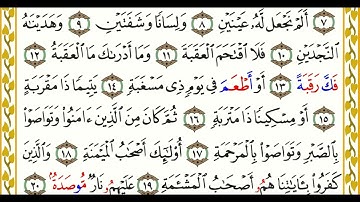 ٧ أَلَمْ نَجْعَل لَّهُۥ عَيْنَيْنِ ٨ وَلِسَانًا وَشَفَتَيْنِ ٩ وَهَدَيْنَٰهُ
ٱلنَّجْدَيْنِ ١٠ فَلَا ٱقْتَحَمَ ٱلْعَقَبَةَ ١١ وَمَآ أَدْرَىٰكَ مَا ٱلْعَقَبَةُ ١٢
فَكُّ رَقَبَةٍ ١٣ أَوْ أَطْعَمَ فِى يَوْمٍ ذِى مَسْغَبَةٍ ١٤ يَتِيمًا ذَا مَقْرَبَةٍ
١٥ أَوْ مِسْكِينًا ذَا مَتْرَبَةٍ ١٦ ثُمَّ كَانَ مِنَ ٱلَّذِينَ ءَامَنُوا۟ وَتَوَاصَوْا۟
بِٱلصَّبْرِ وَتَوَاصَوْا۟ بِٱلْمَرْحَمَةِ ١٧ أُو۟لَٰٓئِكَ أَصْحَٰبُ ٱلْمَيْمَنَةِ ١٨ وَٱلَّذِينَ
كَفَرُوا۟ بِـَٔايَٰتِنَا هُمْ أَصْحَٰبُ ٱلْمَشْـَٔمَةِ ١٩ عَلَيْهِمْ نَارٌ مُّوصَدَةٌۢ ٢٠